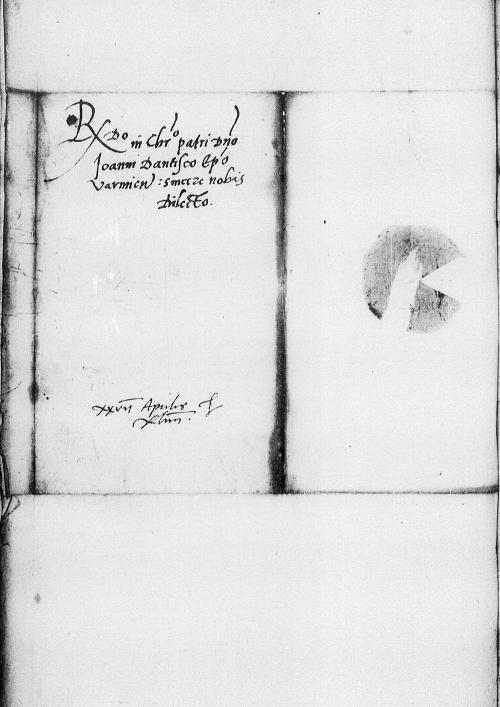 Rdo in Chro patri Dno
Joanni Dantisco Epo
Varmien : sincere nobis
Dilecto.
xxvii Aprilis
xliiii.